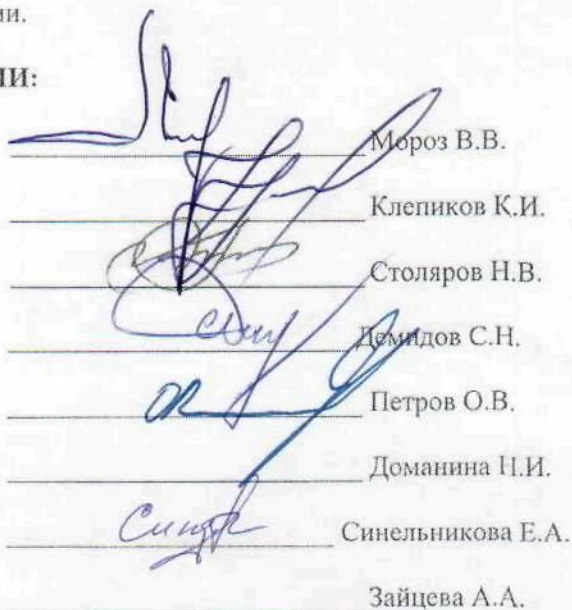 ии.
ИИ:
Мороз В.В.
Клепиков К.И.
Столяров Н.В.
Демидов С.Н.
Петров О.В.
Доманина Н.И.
Синельникова Е.А.
Зайцева А.А.